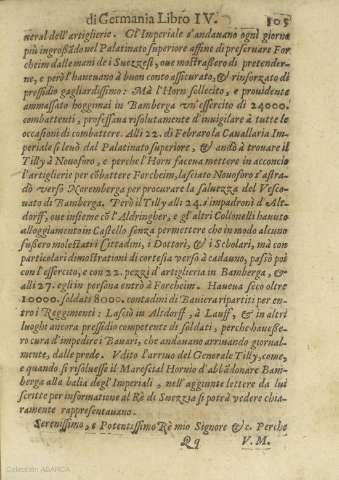 di Germania Libro IV. 105
neral dell'artiglierie. Gl'Imperiale s'andauano ogni giorno
più ingroßādo nel Palatinato superiore affine di preseruare For
cheim dalle mani de i Suezzesi, oue mostraßero di pretender-
ne, e però l'haueuano à buon conto assicurato, & rinforzato di
pressidio gagliardissimo: Mà l'Horn sollecito, e prouidente
ammassato hoggimai in Bamberga vn'essercito di 24000.
combattenti, professaua risolutamente d'inuigilare à tutte le
occasioni di combattere. Alli 22. di Febraro la Cauallaria Im-
periale si leuò dal Palatinato superiore, & andò à trouare il
Tilly à Nouoforo, e perche l'Horn facena mettere in acconcio
l'artiglierie per cōbattere Forcheim, lasciato Nouoforo s'astra-
dò versò Noremberga per procurare la saluezza del Vesco-
uato di Bamberga. Però il Tilly alli 24. s'impadronì d'Alt-
dorff, oue insieme cō l'Aldringher, e gl'altri Collonelli hauuto
alloggiamento in Castello senza permettere che in modo alcuno
fußero molestati i Cittadini, i Dottori, & i Scholari, mà con
particolari dimostrationi di cortesia versò à cadauno, passò poi
con l'essercito, e con 22. pezzi d'artiglieria in Bamberga, &
alli 27. egli in persona entrò à Forcheim. Haueua seco oltre
10000. soldati 8000. contadini di Bauiera ripartiti per en-
tro i Reggimenti: Lasciò in Altdorff, à Lauff, & in altri
luoghi ancora pressidio competente di soldati, perche haueße-
ro cura d'impedire i Bauari, che andauano arriuando giornal-
mente, dalle prede. Vdito l'arriuo del Generale Tilly, come,
e quando si risoluesse il Marescial Hornio d'abbādonare Bam-
berga alla balìa degl'Imperiali, nell'aggiunte lettere da lui
scritte per informatione al Rè di Suezzia si potrà vedere chia-
ramente rappresentauano.
Serenissimo, e Potentissimo Rè mio Signore & c. Perche
Qq V. M.
Colección ABARCA